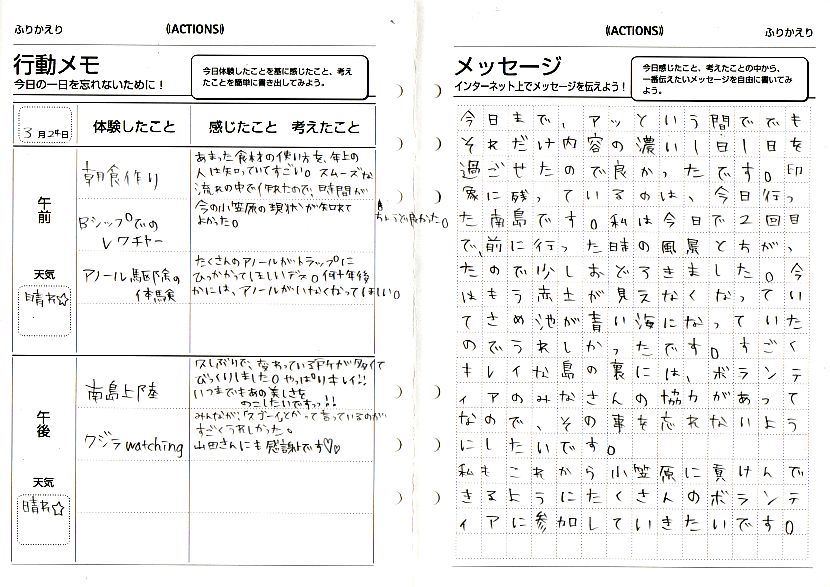 ふりかえり
《ACTIONS》
行動メモ
今日の一日を忘れないために！
今日体験したことを基に感じたこと、考え
たことを簡単に書き出してみよう。
3月24日
体験したこと
感じたこと 考えたこと
午前
天気
晴れ☆
朝食作り
あまった食材の使い方を、年上の
人は知っていてすごい。スムーズな
流れの中で作れたので、時間が
ちょうど良かった。
Bシップでの
レクチャー
今の小笠原の現状が知れて
よかった。
アノール駆除の
体験
たくさんのアノールがトラップに
ひっかかってほしいデス。何十年後
かには、アノールがいなくなってほしい。
午後
天気
晴れ☆
南島上陸
久しぶりで、変わっている所が多くて
びっくりしました。やっぱりキレイ!!
いつまでもあの美しさを
のこしたいですっ!!
クジラwatching
みんなが、「スゴーイ」とかって言っているのが
すごくうれしかった。
山田さんにも感謝です♡♡
《ACTIONS》
ふりかえり
メッセージ
インターネット上でメッセージを伝えよう！
今日感じたこと、考えたことの中から、
一番伝えたいメッセージを自由に書いてみ
よう。
今日まで、アッという間ででも
それだけ内容の濃い1日1日を
過ごせたので良かったです。印
象に残っているのは、今日行っ
た南島です。私は今日で2回目
で、前に行った時の風景とちが、
たので少しおどろきました。今
はもう赤土が見えなくなってい
てさめ池が青い海になっていた
のでうれしかったです。すごく
キレイな島の裏には、ボランテ
ィアのみなさんの協力があって
なので、その事を忘れないよう
にしたいです。
私もこれから小笠原に貢けんで
きるようにたくさんのボランテ
ィアに参加していきたいです。